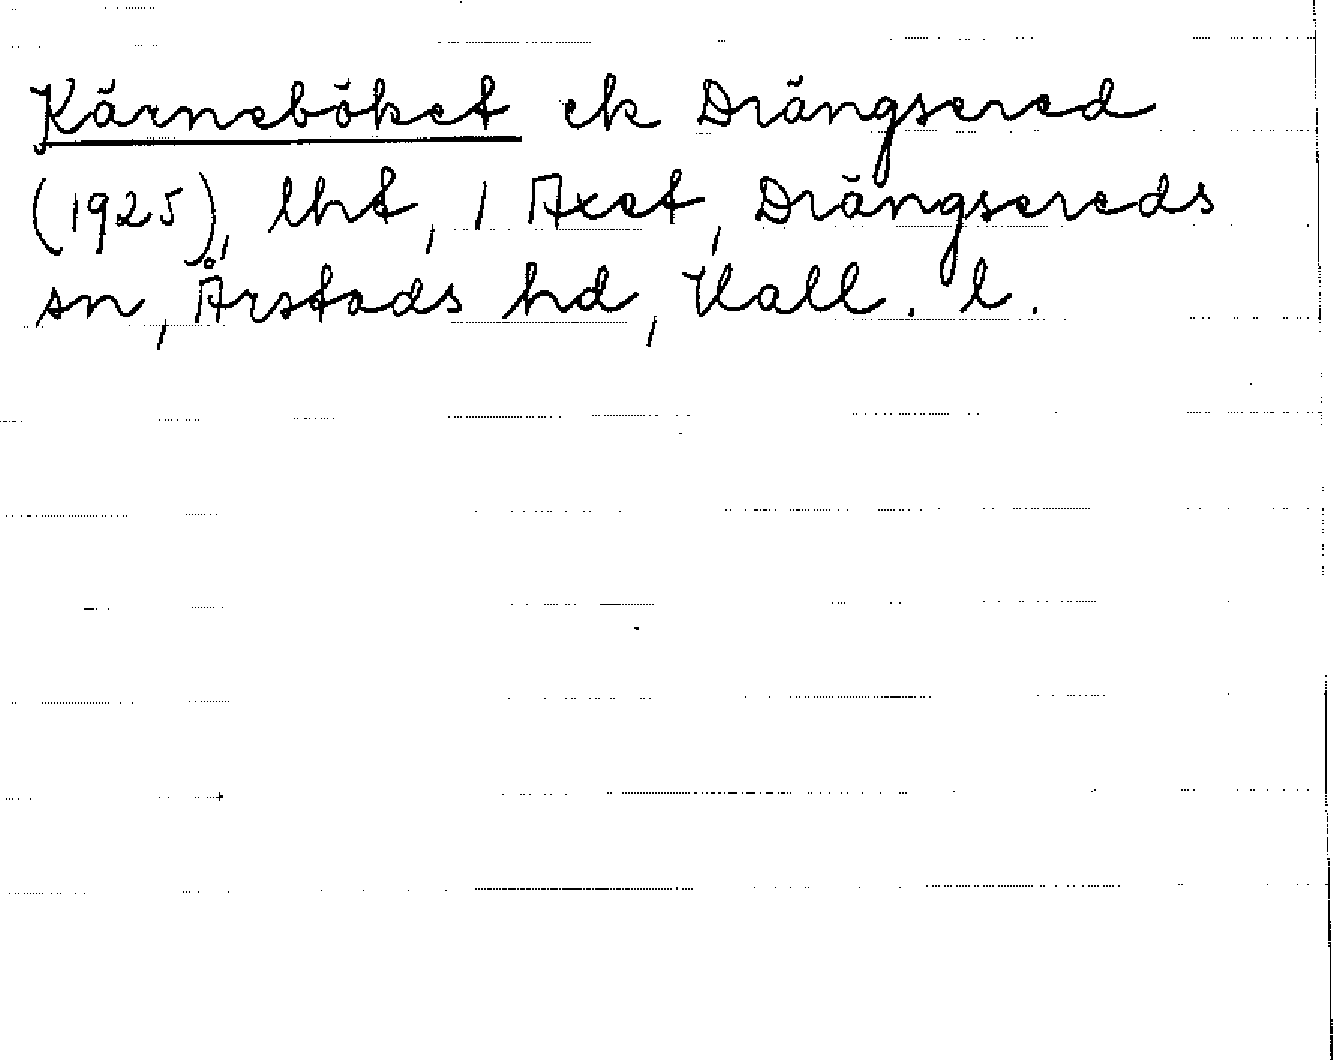 Kärneböket ek Drängsered
(1925), lht, 1 Axet, Drängsereds
sn, Årstads hd, Hall. l.